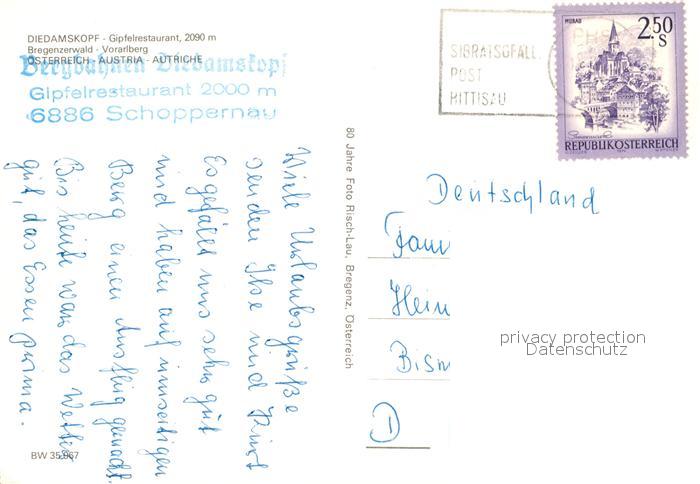 DIEDAMSKOPF - Gipfelrestaurant, 2090 m
Bregenzerwald - Vorarlberg
ÖSTERREICH - AUSTRIA - AUTRICHE
Bergbahnen Diedamskopf
Gipfelrestaurant 2000 m
6886 Schoppernau
SIBRATSGFÄLL
POST
HITTISAU
MURAU
2.50
S
REPUBLIK ÖSTERREICH
Viele Urlaubsgrüße
senden Ilse und Kurt
Es gefällt uns sehr gut
und haben auf umseitigen
Berg einen Ausflug gemacht.
Bis heute war das Wetter
gut, das Essen prima.
80 Jahre Foto Risch-Lau, Bregenz, Österreich
Deutschland
Fam
Hein
Bism
D
privacy protection
Datenschutz
BW 35967